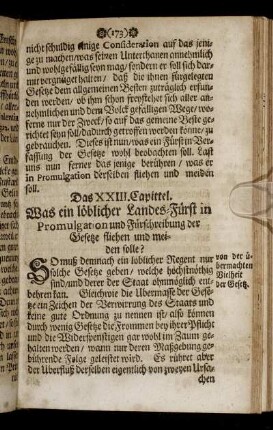 ❁(173)❁
nicht schuldig einige Consideration auf das jeni-
ge zu machen/was seinen Unterthanen annehmlich
und wohlgefällig seyn mag/sondern er soll sich dar-
mit vergnüget halten/ daß die ihnen fürgelegten
Gesetze dem allgemeinen Besten zuträglich erfun-
den werden/ ob ihm schon freystehet sich aller an-
nehmlichen und dem Volck gefälligen Wege/ wo-
ferne nur der Zweck/ so auf das gemeine Beste ge-
richtet seyn soll/dadurch getroffen werden könne/ zu
gebrauchen. Dieses ist nun/was ein Fürst in Ver-
fassung der Gesetze wohl beobachten soll. Last
uns nun ferner das jenige berühren / was er
in Promulgation derselben fliehen und meiden
soll.
Das XXIII. Capittel.
Was ein löblicher Landes-Fürst in
Promulgation und Fürschreibung der
Gesetze fliehen und mei-
den solle?
SO muß demnach ein löblicher Regent nur
solche Gesetze geben/ welche höchstnöthig
sind/und derer der Staat ohnmöglich ent-
behren kan. Gleichwie die Ubermasse der Gese-
tze ein Zeichen der Verwirrung des Staats und
keine gute Ordnung zu nennen ist/ also können
durch wenig Gesetze die Frommen bey ihrer Pflicht
und die Widerspenstigen gar wohl im Zaum ge-
halten werden/ wann nur deren Maßgebung ge-
bührende Folge geleistet wird. Es rühret aber
der Uberfluß derselben eigentlich von zweyen Ursa-
chen
von der ü-
bermachten
Vielheit
der Gesetz.